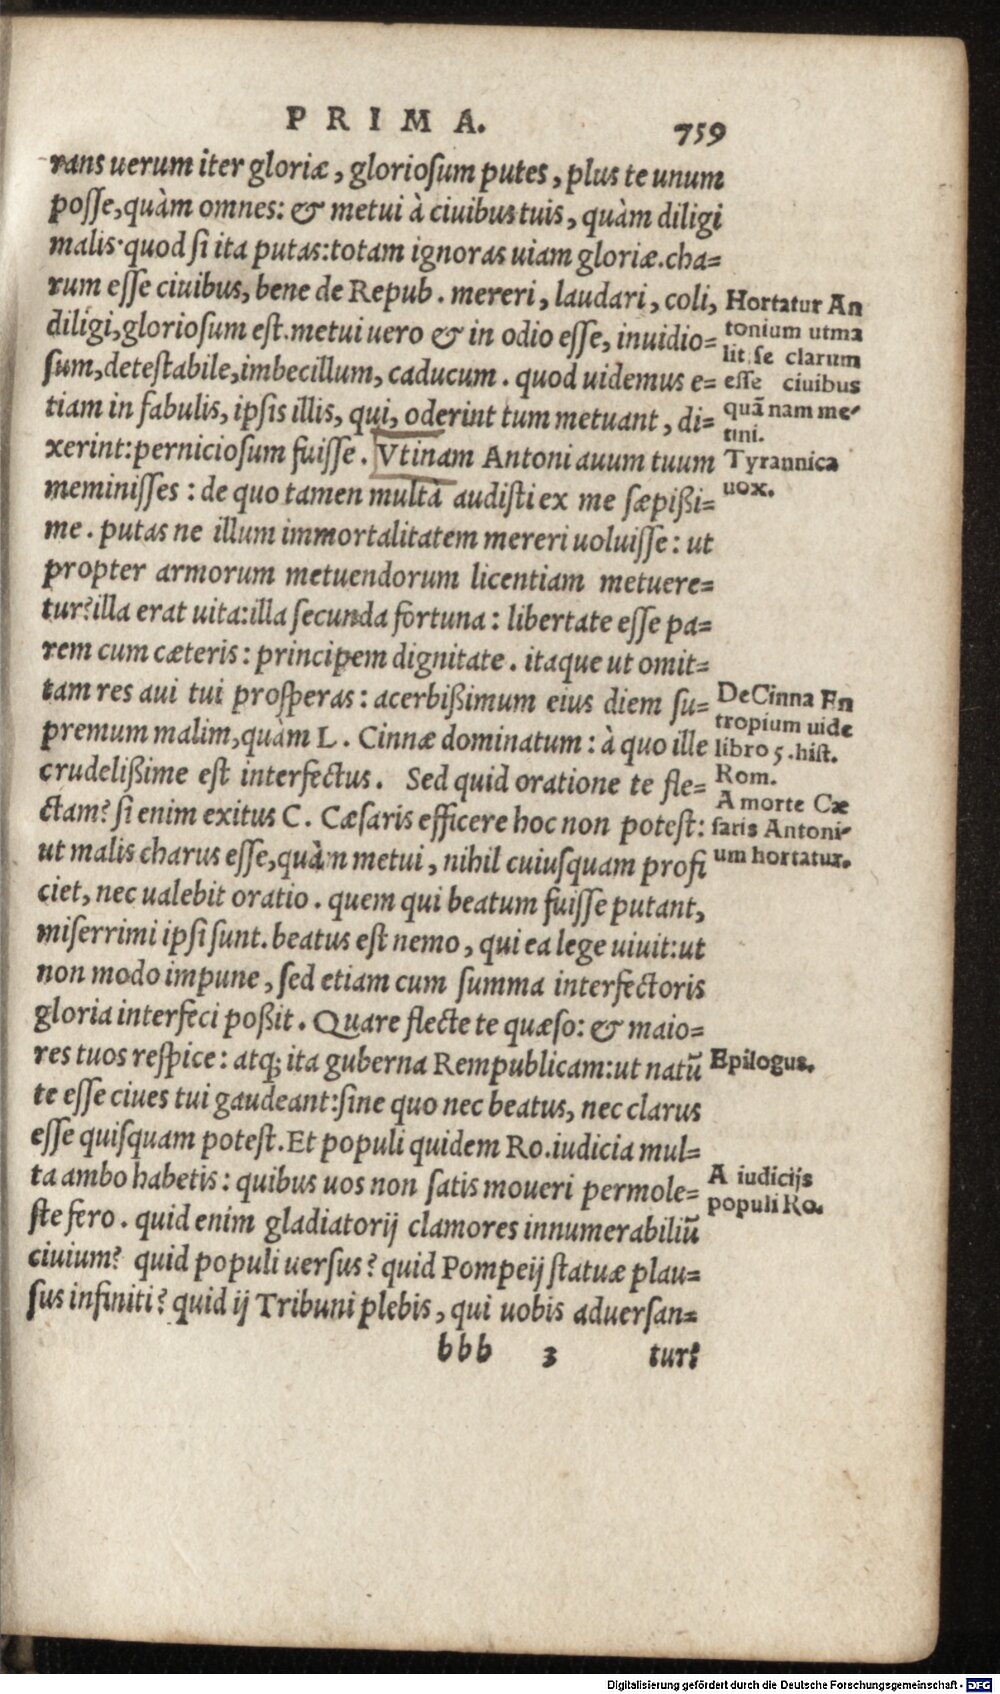 PRIMA. 759
rans uerum iter gloriæ, gloriosum putes, plus te unum
posse, quàm omnes: & metui à ciuibus tuis, quàm diligi
malis. quod si ita putas: totam ignoras uiam gloriæ. cha=
rum esse ciuibus, bene de Repub. mereri, laudari, coli,
diligi, gloriosum est. metui uero & in odio esse, inuidio=
sum, detestabile, imbecillum, caducum. quod uidemus e=
tiam in fabulis, ipsis illis, qui, oderint tum metuant, di=
xerint: perniciosum fuisse. Vtinam Antoni auum tuum
meminisses: de quo tamen multa audisti ex me sæpißi=
me. putas ne illum immortalitatem mereri uoluisse: ut
propter armorum metuendorum licentiam metuere=
tur? illa erat uita: illa secunda fortuna: libertate esse pa=
rem cum cæteris: principem dignitate. itaque ut omit=
tam res aui tui prosperas: acerbißimum eius diem su=
premum malim, quam L. Cinnæ dominatum: à quo ille
crudelißime est interfectus. Sed quid oratione te fle=
ctam? si enim exitus C. Cæsaris efficere hoc non potest:
ut malis charus esse, quàm metui, nihil cuiusquam profi
ciet, nec ualebit oratio. quem qui beatum fuisse putant,
miserrimi ipsi sunt. beatus est nemo, qui ea lege uiuit: ut
non modo impune, sed etiam cum summa interfectoris
gloria interfeci poßit. Quare flecte te quæso: & maio=
res tuos respice: atq; ita guberna Rempublicam: ut natũ
te esse ciues tui gaudeant: sine quo nec beatus, nec clarus
esse quisquam potest. Et populi quidem Ro. iudicia mul=
ta ambo habetis: quibus uos non satis moueri permole=
ste fero. quid enim gladiatorij clamores innumerabiliũ
ciuium? quid populi uersus? quid Pompeij statuæ plau=
sus infiniti? quid ij Tribuni plebis, qui uobis aduersan=
bbb 3 tur?
Hortatur An
tonium utma
lit se clarum
esse ciuibus
quã nam me-
tini.
Tyrannica
uox.
De Cinna En
tropium uide
libro 5. hist.
Rom.
A morte Cæ
saris Antoni-
um hortatur.
Epilogus.
A iudicijs
populi Ro.
Digitalisierung gefördert durch die Deutsche Forschungsgemeinschaft - DFG